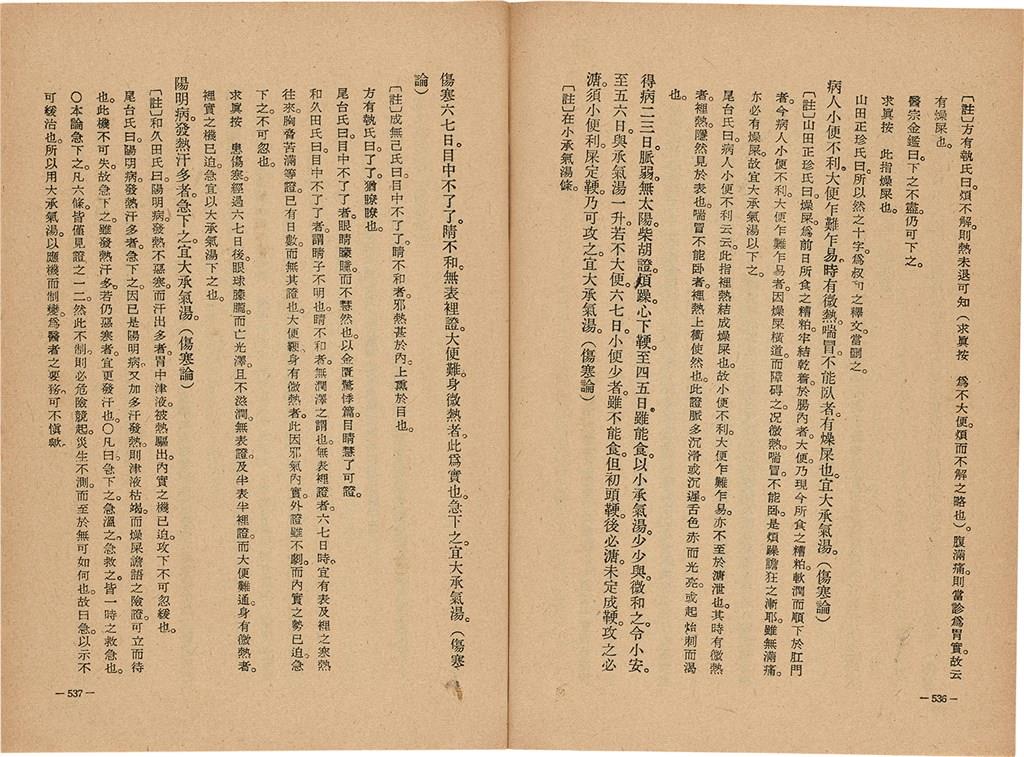 〔註〕方有執氏曰。煩不解。則熱未退可知(求眞按 爲不大便。煩而不解之略也)。腹滿痛。則當診爲胃實。故云
有燥屎也。
醫宗金鑑曰。下之不盡。仍可下之。
求眞按 此指燥屎也。
山田正珍氏曰。所以然之十字。爲叔和之釋文。當删之。
病人小便不利。大便乍難乍易。時有微熱。喘冒不能臥者。有燥屎也。宜大承氣湯。(傷寒論)
〔註〕山田正珍氏曰。燥屎。爲前日所食之糟粕。牢結乾著於腸內者。大便。乃現今所食之糟粕。軟潤而順下於肛門
者。今病人小便不利。大便乍難乍易者。因燥屎橫道而障碍之。况微熱。喘冒。不能臥。是煩躁譫狂之漸耶。雖無滿痛。
亦必有燥屎。故宜大承氣湯以下之。
尾台氏曰。病人小便不利云云。此指裡熱結成燥屎也。故小便不利。大便乍難乍易。亦不至於溏泄也。其時有微熱
者。裡熱隱然見於表也。喘冒不能臥者。裡熱上衝使然也。此證脈多沉滑或沉遲。舌色赤而光亮。或起胎刺而渴
也。
得病二三日。脈弱。無太陽柴胡證。煩躁心下鞕。至四五日。雖能食。以小承氣湯。少少與。微和之。令小安。
至五六日。與承氣湯一升。若不大便六七日。小便少者。雖不能食。但初頭鞕。後必溏。未定成鞕。攻之必
溏。須小便利。屎定鞕。乃可攻之。宜大承氣湯。(傷寒論)
〔註〕在小承氣湯條。
— 536 —
傷寒六七日。目中不了了。睛不和。無表裡證。大便難。身微熱者。此爲實也。急下之。宜大承氣湯。(傷寒
論)
〔註〕成無己氏曰。目中不了了。睛不和者。邪熱甚於內。上熏於目也。
方有執氏曰。了了。猶瞭瞭也。
尾台氏曰。目中不了了者。眼睛矇矓而不慧然也。以金匱驚悸篇。目睛慧了可證。
和久田氏曰。目中不了了者。謂睛子不明也。睛不和者。無潤澤之謂也。無表裡證者。六七日時。宜有表及裡之寒熱
往來。胸脅苦滿等證。已有日數。而無其證也。大便鞕。身有微熱者。此因邪氣內實。外證雖不劇。而內實之勢已迫。急
下之。不可忽也。
求眞按 患傷寒經過六七日後。眼球矇矓。而亡光澤。且不滋潤。無表證及半表半裡證。而大便難通。身有微熱者。
裡實之機已迫。急宜以大承氣湯下之也。
陽明病。發熱汗多者。急下之。宜大承氣湯。(傷寒論)
〔註〕和久田氏曰。陽明病。發熱不惡寒。而汗出多者。胃中津液被熱驅出。內實之機已迫。攻下不可忽緩也。
尾台氏曰。陽明病。發熱汗多者。急下之。因已是陽明病。又加多汗發熱。則津液枯竭。而燥屎譫語之險證。可立而待
也。此機不可失。故急下之。雖發熱汗多。若仍惡寒者。宜更發汗也。〇凡曰急下之。急溫之。急救之。皆一時之救急也。
〇本論急下之。凡六條。皆僅見證之一二。然此不制。則必危險競起。災生不測。而至於無可如何也。故曰急。以示不
可緩治也。所以用大承氣湯以應機而制變。爲醫者之要務。可不愼歟。
— 537 —